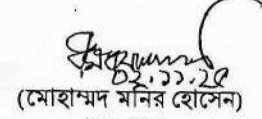 ০২.১১.২৫
(মোহাম্মদ মনির হোসেন)